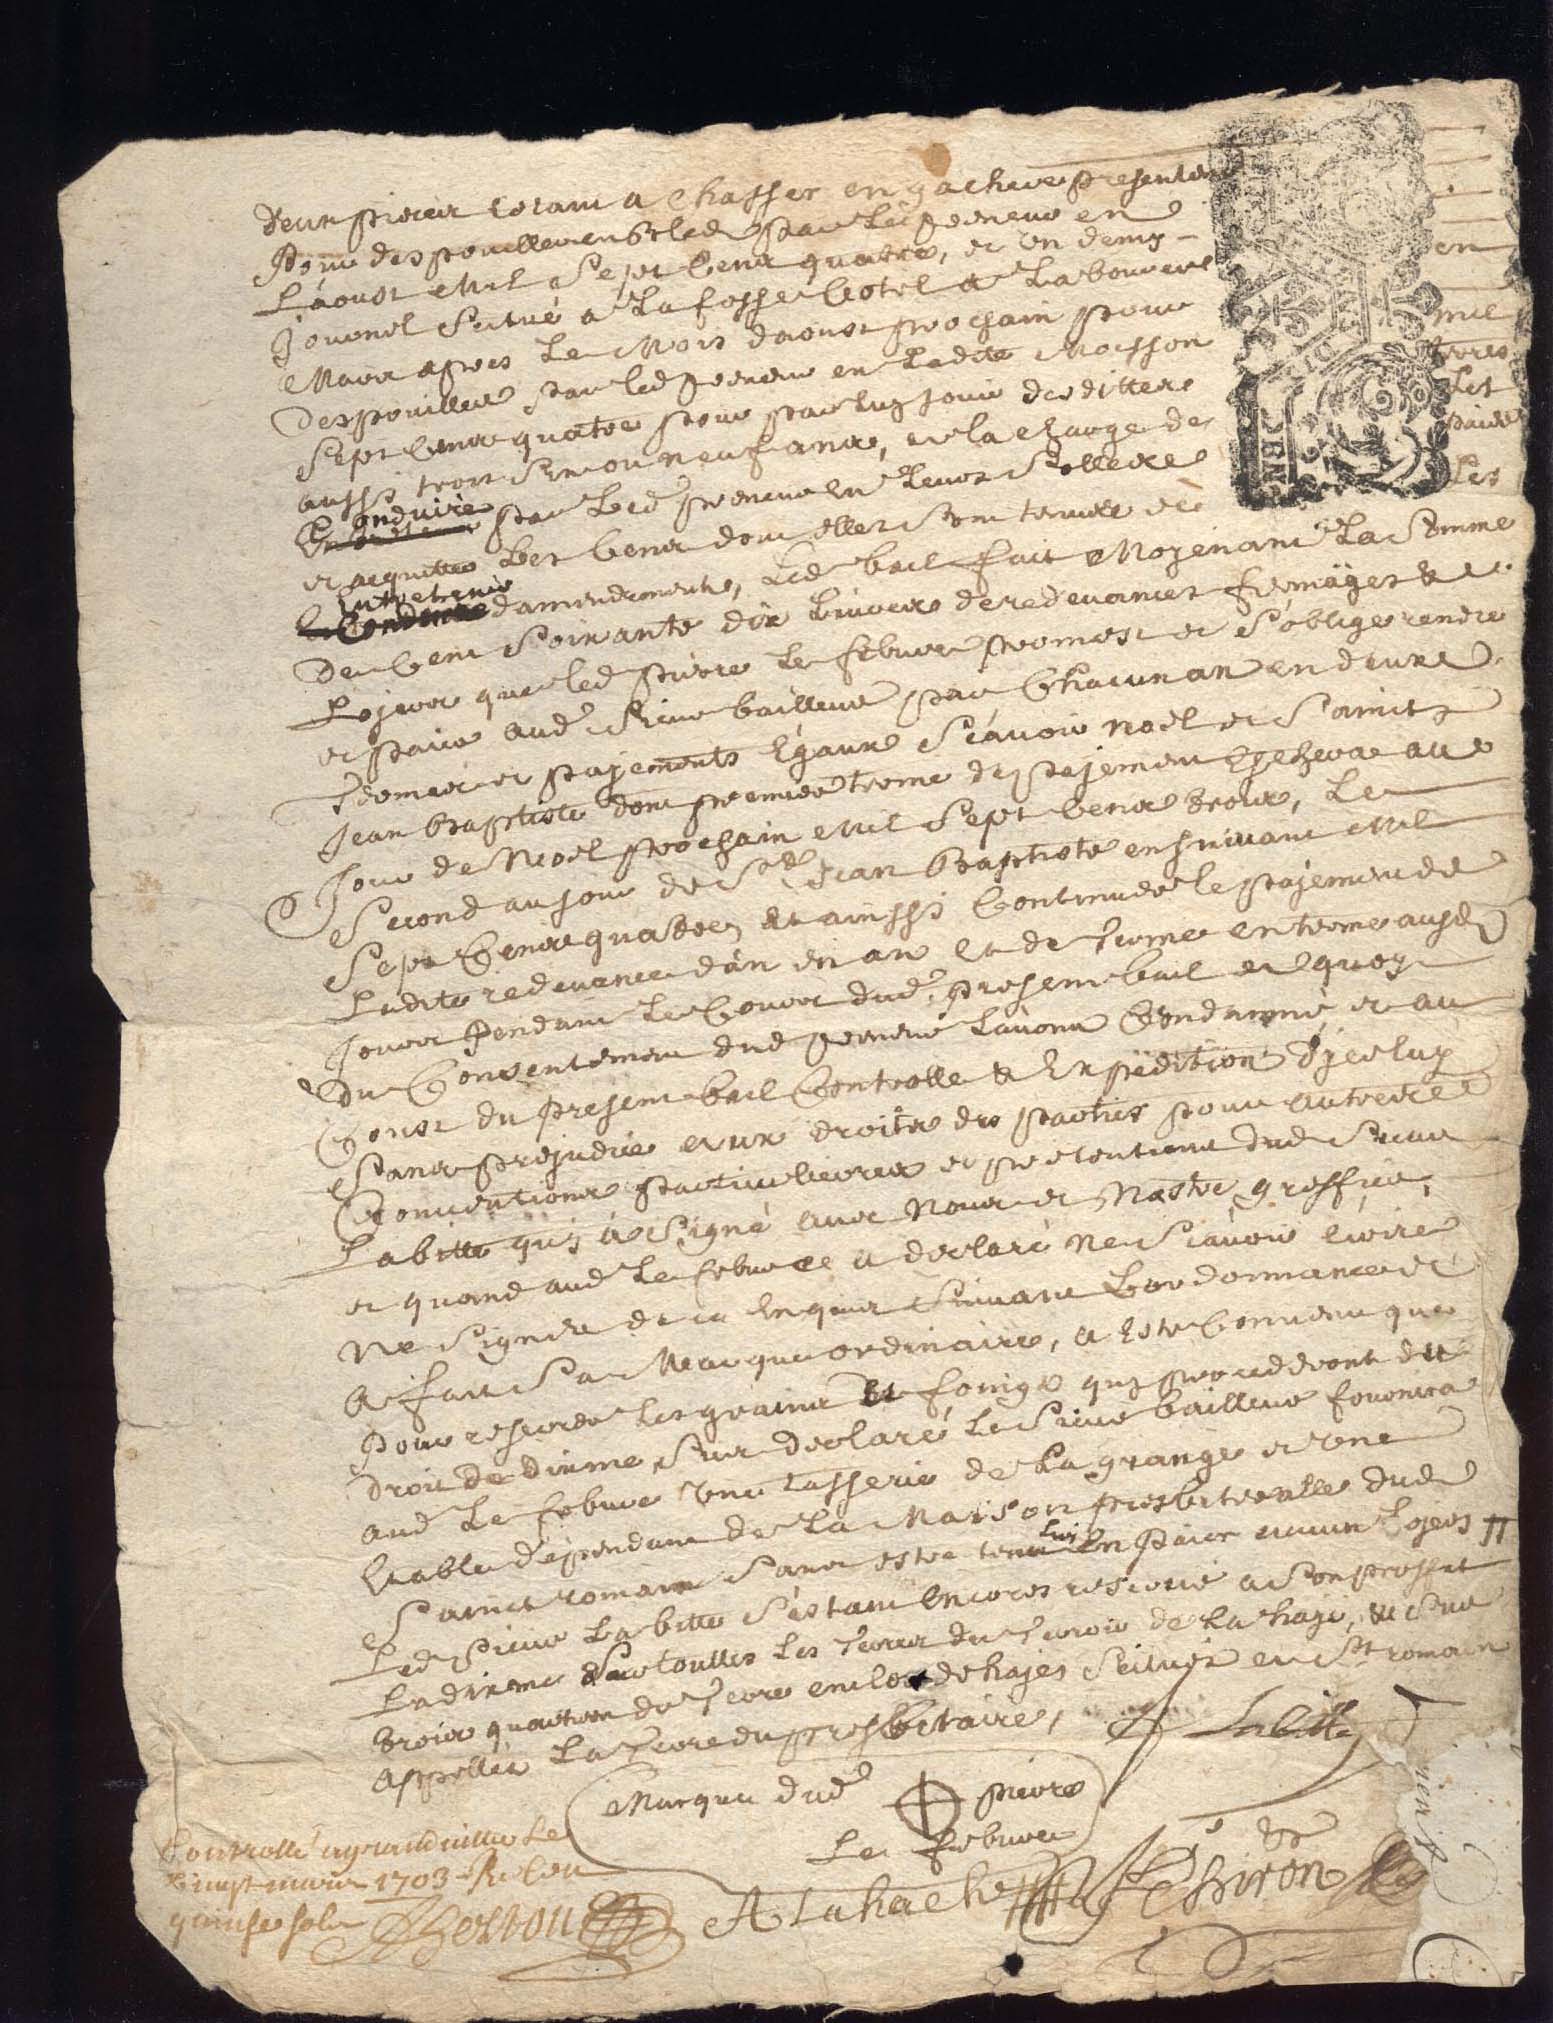 deux pieces les a chasser en gachere presentem
Pour despouiller en bled par led preneur en
L'aoust Mil Sept Cent quatre, et Un demy
Journel Scitué a La fosse
Mars apres Le Mois daoust prochain pour
Despouiller par led preneur en Ladite Moisson
Sept Cent quatre pour par luy Jouir desdittes
aussi trois Six ou neuf ans, a la charge de
Conduire par Led preneur en
et acquitter Les Cens dont elles sont tenues et
entretenir
damendements, Led bail fait Moyenant La Somme
De Cent Soixante dix Livres de redevances fermages et
Loyers que led pierre Le febure promest et S'oblige rendre
et paier aud Sieur bailleur par Chacun an en deux
Termes et payements Egaux Scavoir noel et Sainct
Jean Baptiste dont premier terme de payement Eschera au
Jour de Noel prochain Mil Sept Cens Trois, Le
Second au Jour de St Jean Baptiste ensuivant Mil
Sept Cens quatre, Et ainssi Continuer le payement de
Ladite redevance d'an en an et de Terme en terme ausd
Jours Pendant Le Cours dud. present bail et quoy
Du Consentement dud preneur L'avons Condamné, et au
Coust du present bail Controlle et Expedition d'jceluy
Sans prejudice aux droits des parties pour autres
Conventions particulieres et pretentions dud Sieur
Labitte quj a Signé avec Nous et Nostre greffier,
et quand aud Le febure a declaré ne Scavoir Ecrire
Ne Signer de ce Enquis Suivant L'ordonnance et
A fait Sa Marque ordinaire, a Este Convenu que
Pour reserrer Les grains Et fouages quj procederont du
Droit De dixme Sus declaré Le Sieur bailleur fournira
aud Le febure Une tasserie de La grange et Une
Etable dependant de La Maison presbiteralle dud
Sainct romain Sans estre tenu Luy En paier aucun Loyers
Led Sieur Labitte S'estant Encores reservé a Son proffit
La dixme Sur touttes Les Terres du Terroir de La haye, et Sur
Trois quartiers de Terre enclos de hayes Scitués en St romain
Appellés La Terre du presbitaire,
Labitte
Marque dud pierre
Le febure
Controllé a grandvillier Le
vingt mars 1703 Recu
quinse sols
A Lahache
en
mil
Les
Les